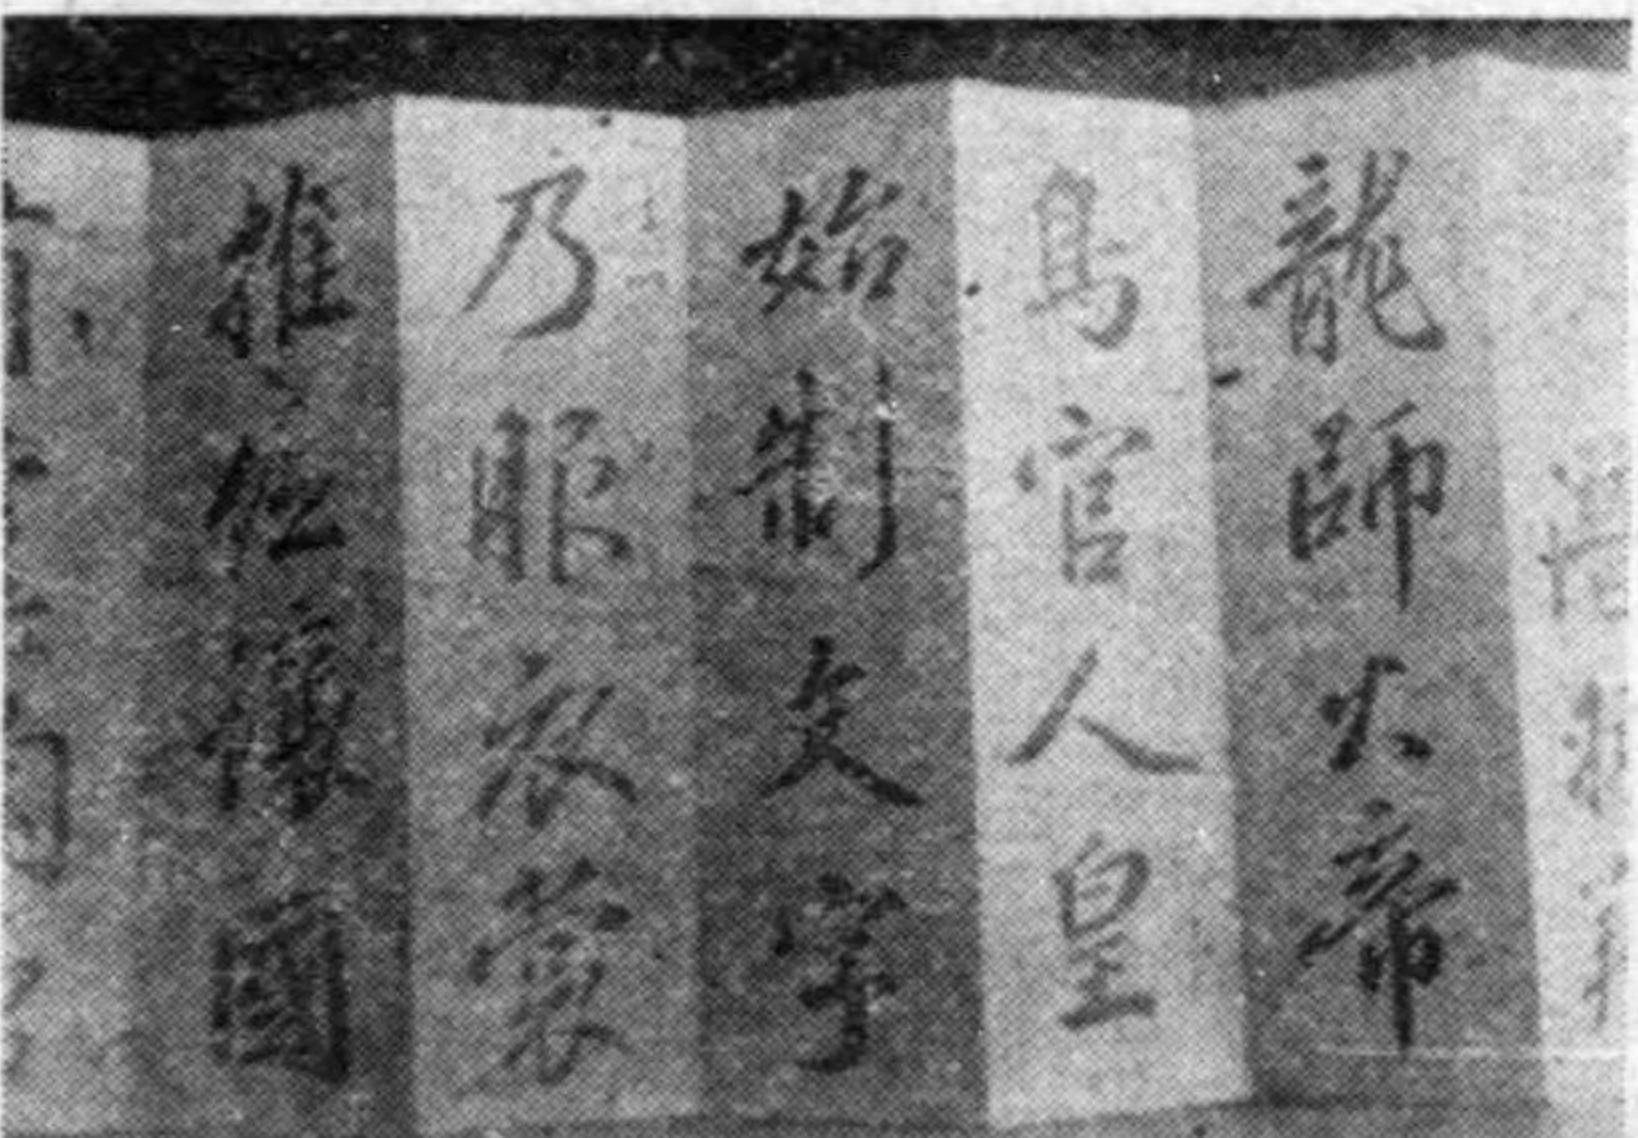 龍師火帝
鳥官人皇
始制文字
乃服衣裳
推位讓國